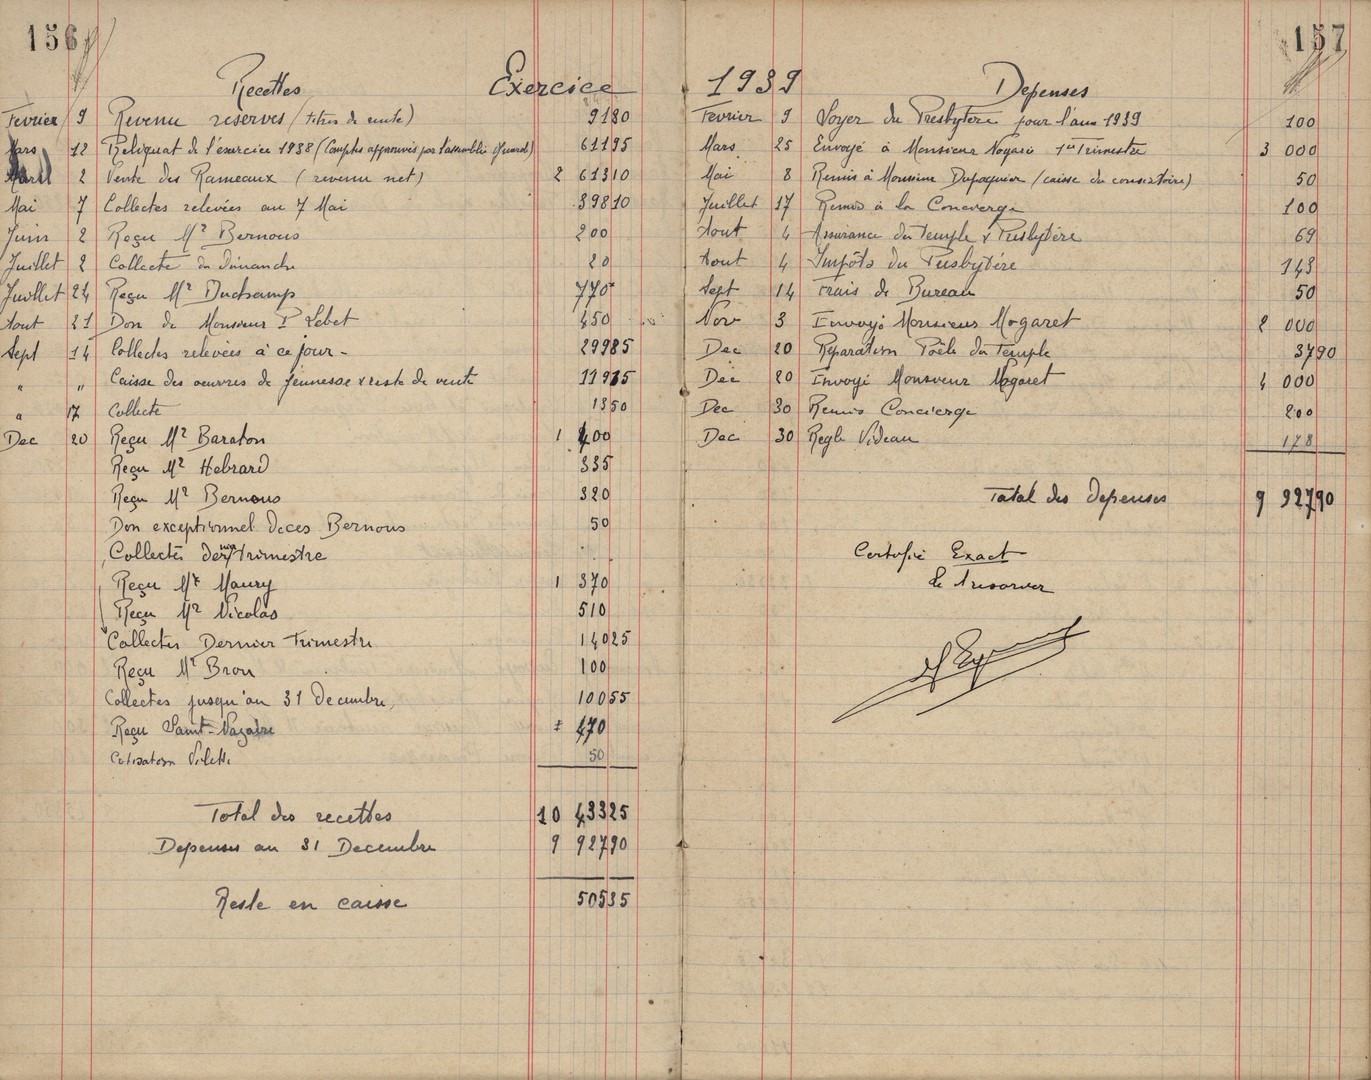 156
Recettes Exercice
Fevrier 9 Revenu reserves (titres de rente) 91 80
Mars 12 Reliquat de l'exercice 1938 (Comptes approuvés par l'assemblée générale) 611 95
Avril 2 Vente des Rameaux (revenu net) 2 613 10
Mai 7 Collectes relevées au 7 Mai 398 10
Juin 2 Reçu Mr Bernous 200
Juillet 2 Collecte du Dimanche 20
Juillet 24 Reçu Mr Duchamp 770
Aout 21 Don de Monsieur P Lebet 450
Sept 14 Collectes relevées à ce jour - 299 85
" " Caisse des oeuvres de jeunesse & reste de vente 119 15
" 17 Collecte 13 50
Dec 20 Reçu Mr Baraton 1 400
Reçu Mr Hebrard 335
Reçu Mr Bernous 320
Don exceptionnel deces Bernous 50
Collectes dernier Trimestre
Reçu Mr Maury 1 370
Reçu Mr Nicolas 510
Collectes Dernier Trimestre 140 25
Reçu Mr Bron 100
Collectes jusqu'au 31 Decembre, 100 55
Reçu Saint-Nazaire 470
Cotisation 50
Total des recettes 10 433 25
Depenses au 31 Decembre 9 927 90
Reste en caisse 505 35
157
1939 Depenses
Fevrier 9 Loyer du Presbytère pour l'an 1939 100
Mars 25 Envoyé à Monsieur 1er Trimestre 3 000
Mai 8 Remis à Monsieur Dupaquier (caisse du consistoire) 50
Juillet 17 Remis à la Concierge 100
Aout 4 Assurance du Temple & Presbytère 69
Aout 4 Impôts du Presbytère 143
Sept 14 Frais de Bureau 50
Nov 3 Envoyé Monsieur Nogaret 2 000
Dec 20 Réparation Poêle du Temple 37 90
Dec 20 Envoyé Monsieur Nogaret 4 000
Dec 30 Remis Concierge 200
Dec 30 Reglé Videau 178
Total des depenses 9 927 90
Certifié Exact
Le Tresorier